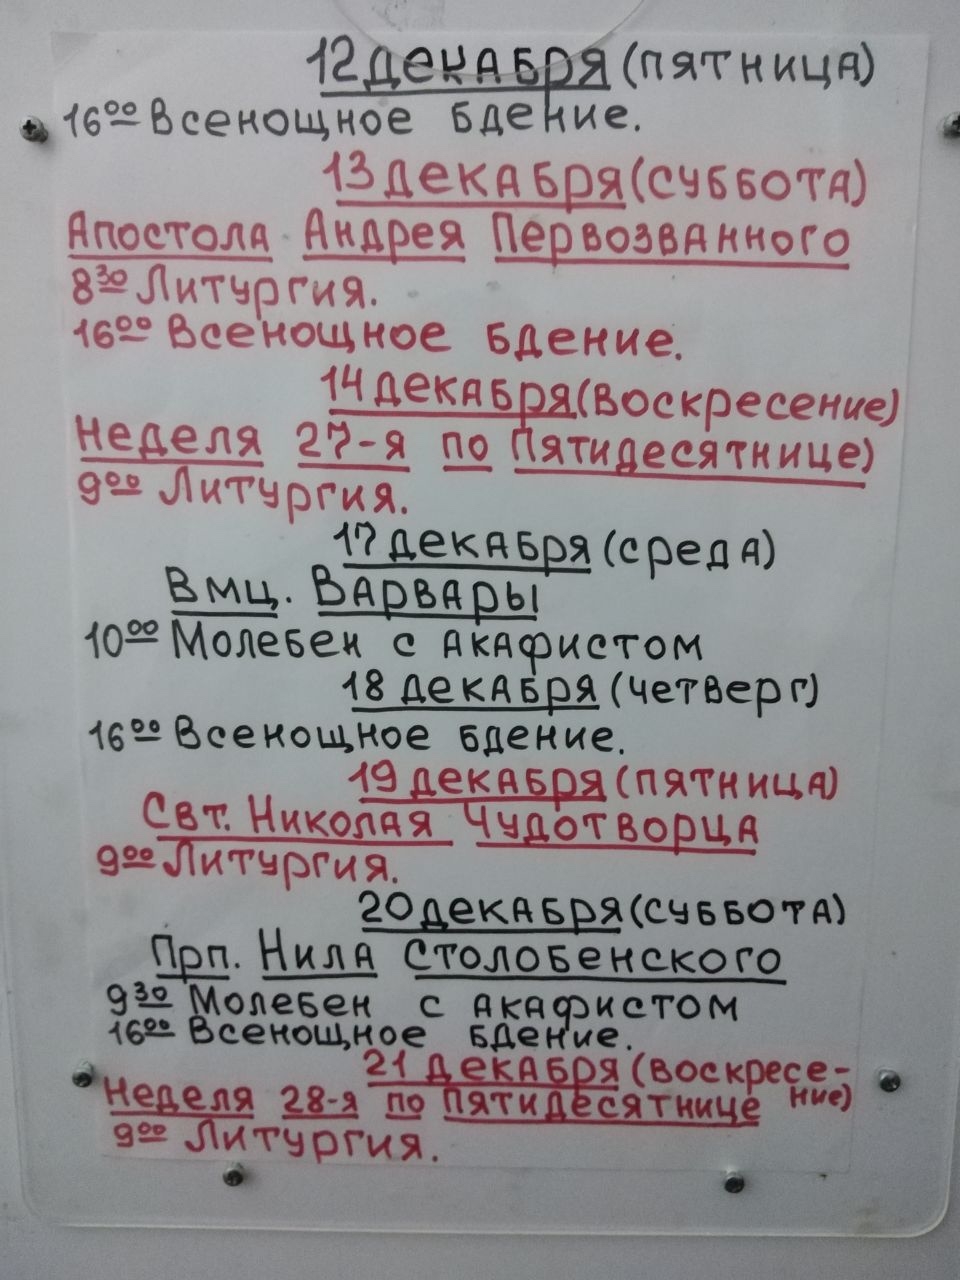 12 декабря (пятница)
16⁰⁰ Всенощное бдение.
13 декабря (суббота)
Апостола Андрея Первозванного
8³⁰ Литургия.
16⁰⁰ Всенощное бдение.
14 декабря (воскресение)
Неделя 27-я по Пятидесятнице)
9⁰⁰ Литургия.
17 декабря (среда)
Вмц. Варвары
10⁰⁰ Молебен с акафистом
18 декабря (четверг)
16⁰⁰ Всенощное бдение.
19 декабря (пятница)
Свт. Николая Чудотворца
9⁰⁰ Литургия.
20 декабря (суббота)
Прп. Нила Столобенского
9³⁰ Молебен с акафистом
16⁰⁰ Всенощное бдение.
21 декабря (воскресе-
ние)
Неделя 28-я по Пятидесятнице
9⁰⁰ Литургия.